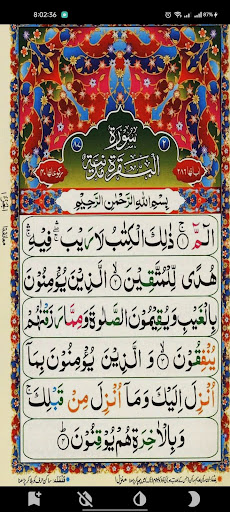 8:02:36
87%
سُوْرَةُ
الْبَقَرَةِ مَدَنِيَّةٌ
بِسْمِ اللهِ الرَّحْمٰنِ الرَّحِيْمِ
الٓمّٓ ۚ ذٰلِكَ الْكِتٰبُ لَا رَيْبَ ۛ فِيْهِ ۛ
هُدًى لِّلْمُتَّقِيْنَ ۙ الَّذِيْنَ يُؤْمِنُوْنَ
بِالْغَيْبِ وَيُقِيْمُوْنَ الصَّلٰوةَ وَمِمَّا رَزَقْنٰهُمْ
يُنْفِقُوْنَ ۙ وَالَّذِيْنَ يُؤْمِنُوْنَ بِمَآ
اُنْزِلَ اِلَيْكَ وَمَآ اُنْزِلَ مِنْ قَبْلِكَ ۚ
وَبِالْاٰخِرَةِ هُمْ يُوْقِنُوْنَ ؕ